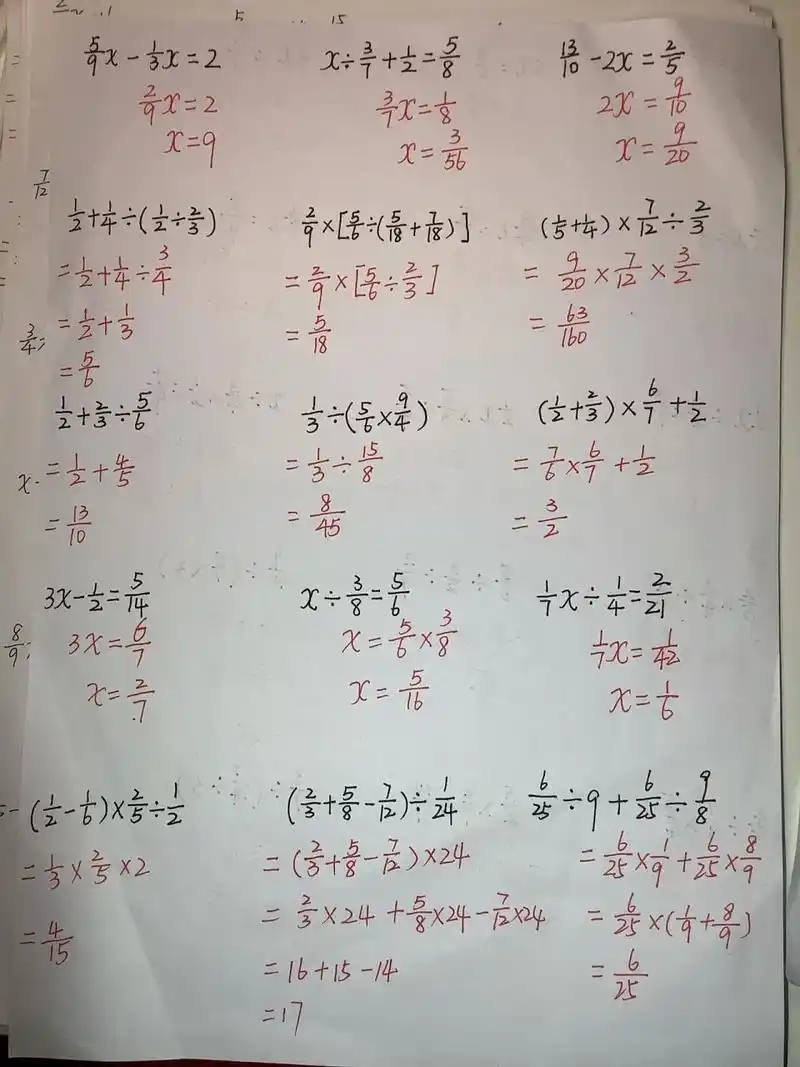 5/9x - 1/3x = 2
2/9x = 2
x = 9
x ÷ 3/7 + 1/2 = 5/8
3/7x = 1/8
x = 3/56
13/10 - 2x = 2/5
2x = 9/10
x = 9/20
1/2 + 1/4 ÷ (1/2 ÷ 2/3)
= 1/2 + 1/4 ÷ 3/4
= 1/2 + 1/3
= 5/6
2/9 × [5/6 ÷ (5/18 + 7/18)]
= 2/9 × [5/6 ÷ 2/3]
= 5/18
(1/5 + 1/4) × 7/12 ÷ 2/3
= 9/20 × 7/12 × 3/2
= 63/160
1/2 + 2/3 ÷ 5/6
= 1/2 + 4/5
= 13/10
1/3 ÷ (5/6 × 9/4)
= 1/3 ÷ 15/8
= 8/45
(1/2 + 2/3) × 6/7 + 1/2
= 7/6 × 6/7 + 1/2
= 3/2
3x - 1/2 = 5/14
3x = 6/7
x = 2/7
x ÷ 3/8 = 5/6
x = 5/6 × 3/8
x = 5/16
1/7x ÷ 1/4 = 2/21
1/7x = 1/42
x = 1/6
(1/2 - 1/6) × 2/5 ÷ 1/2
= 1/3 × 2/5 × 2
= 4/15
(2/3 + 5/8 - 7/12) ÷ 1/24
= (2/3 + 5/8 - 7/12) × 24
= 2/3 × 24 + 5/8 × 24 - 7/12 × 24
= 16 + 15 - 14
= 17
6/25 ÷ 9 + 6/25 ÷ 9/8
= 6/25 × 1/9 + 6/25 × 8/9
= 6/25 × (1/9 + 8/9)
= 6/25
7/12
3/4
x
8/9
5
15